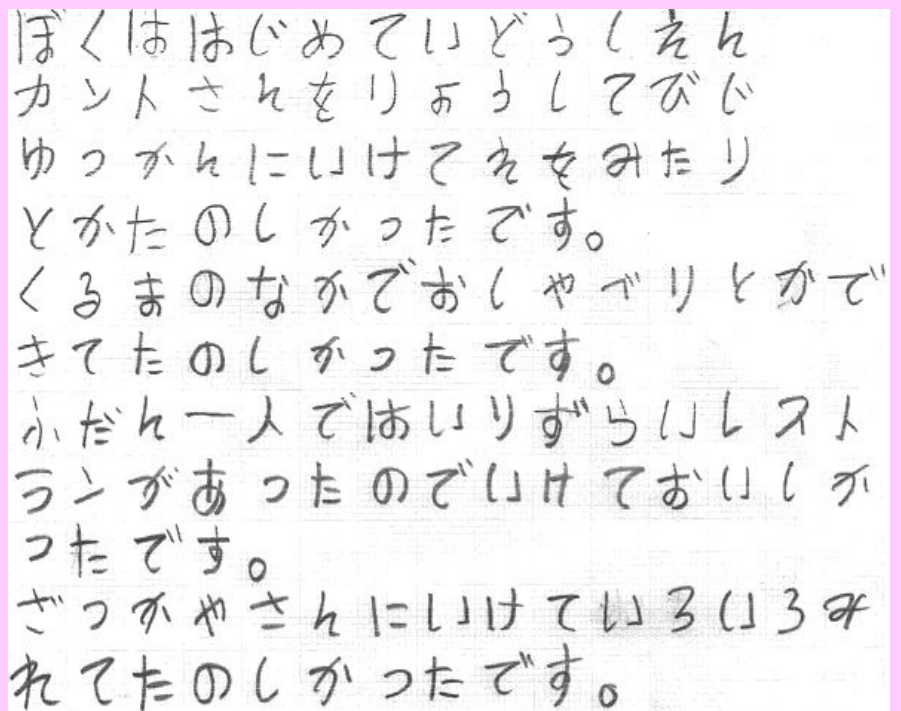 ぼくははじめていどうしえん
カントさんをりようしてびじ
ゆつかんにいけてえをみたり
とかたのしかつたです。
くるまのなかでおしやべりとかで
きてたのしかつたです。
ふだん一人ではいりずらいレスト
ランがあつたのでいけておいしか
つたです。
ざつかやさんにいけていろいろみ
れてたのしかつたです。